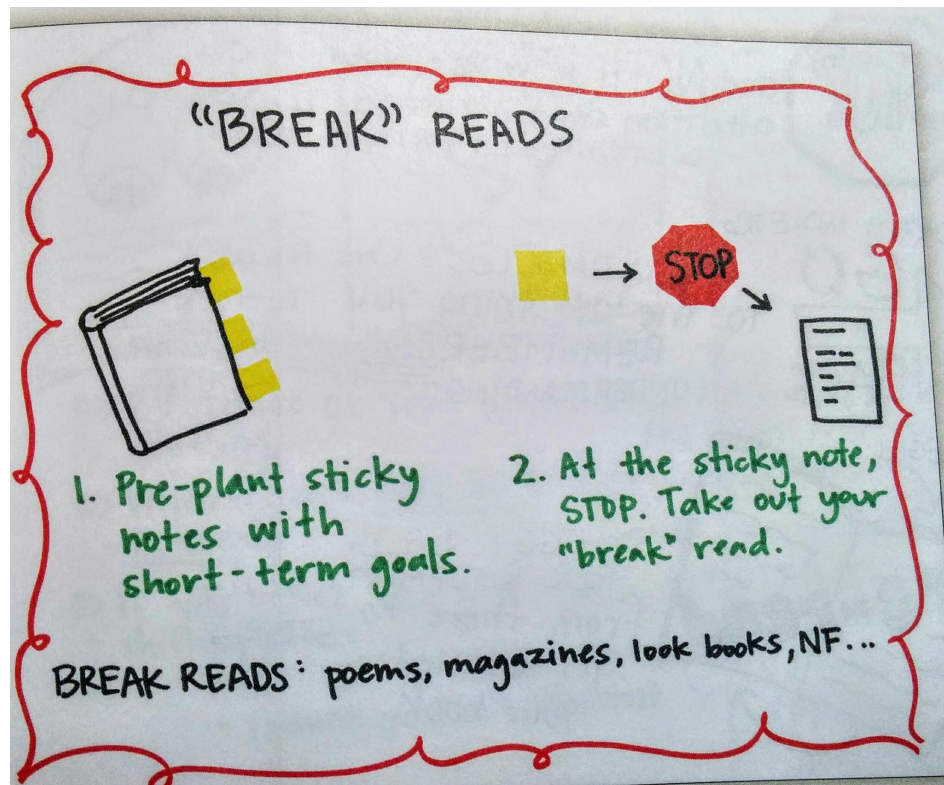 "BREAK" READS
STOP
1. Pre-plant sticky
notes with
short-term goals.
2. At the sticky note,
STOP. Take out your
"break" read.
BREAK READS: poems, magazines, look books, NF...